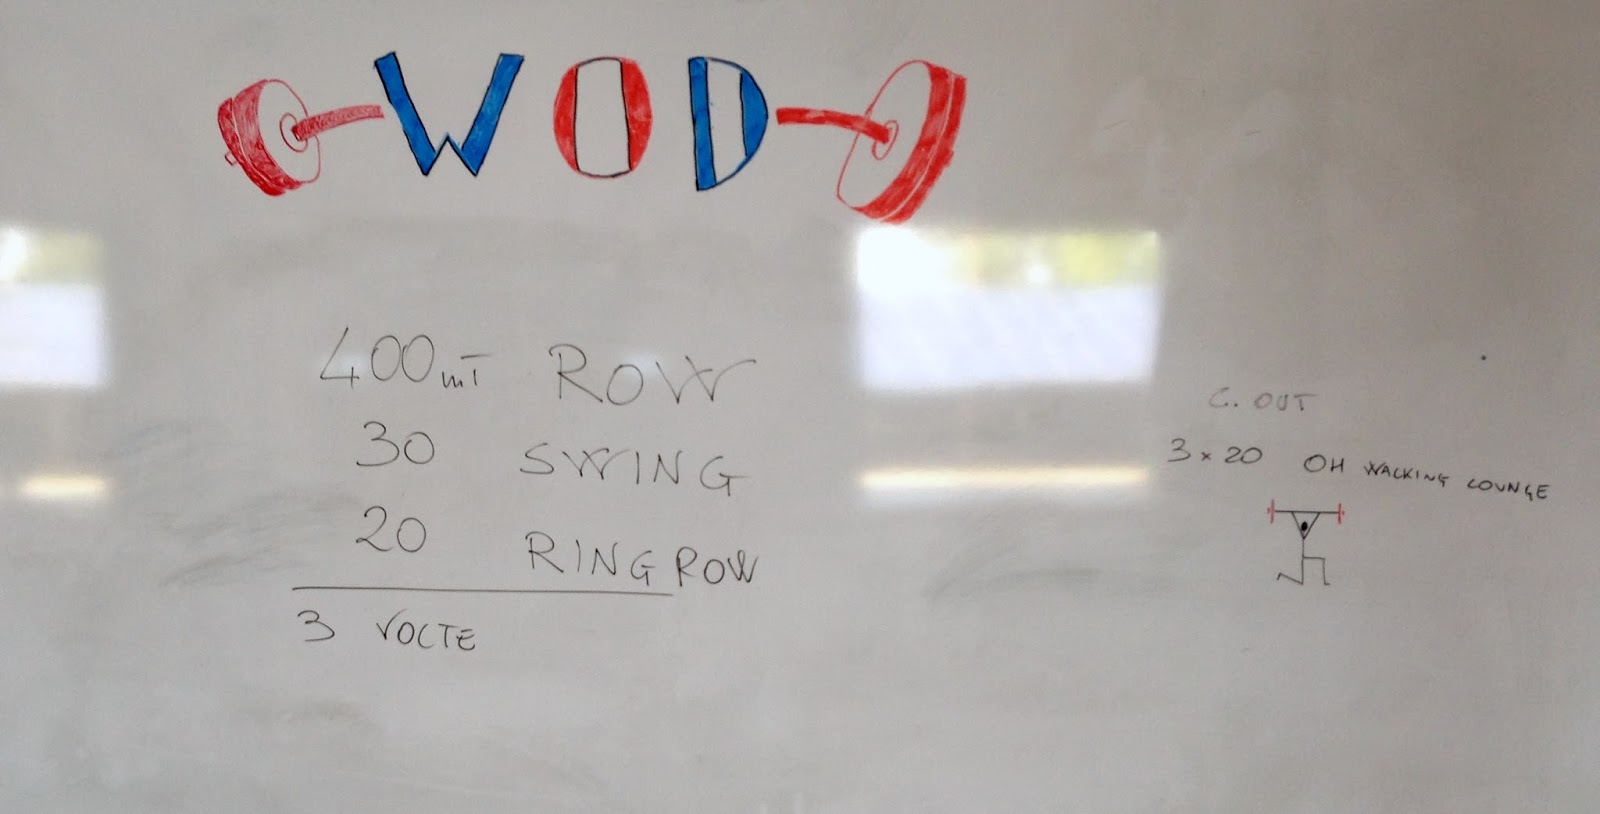 WOD
400mT ROW
30 SWING
20 RING ROW
3 VOLTE
C. OUT
3 x 20 OH WALKING LOUNGE